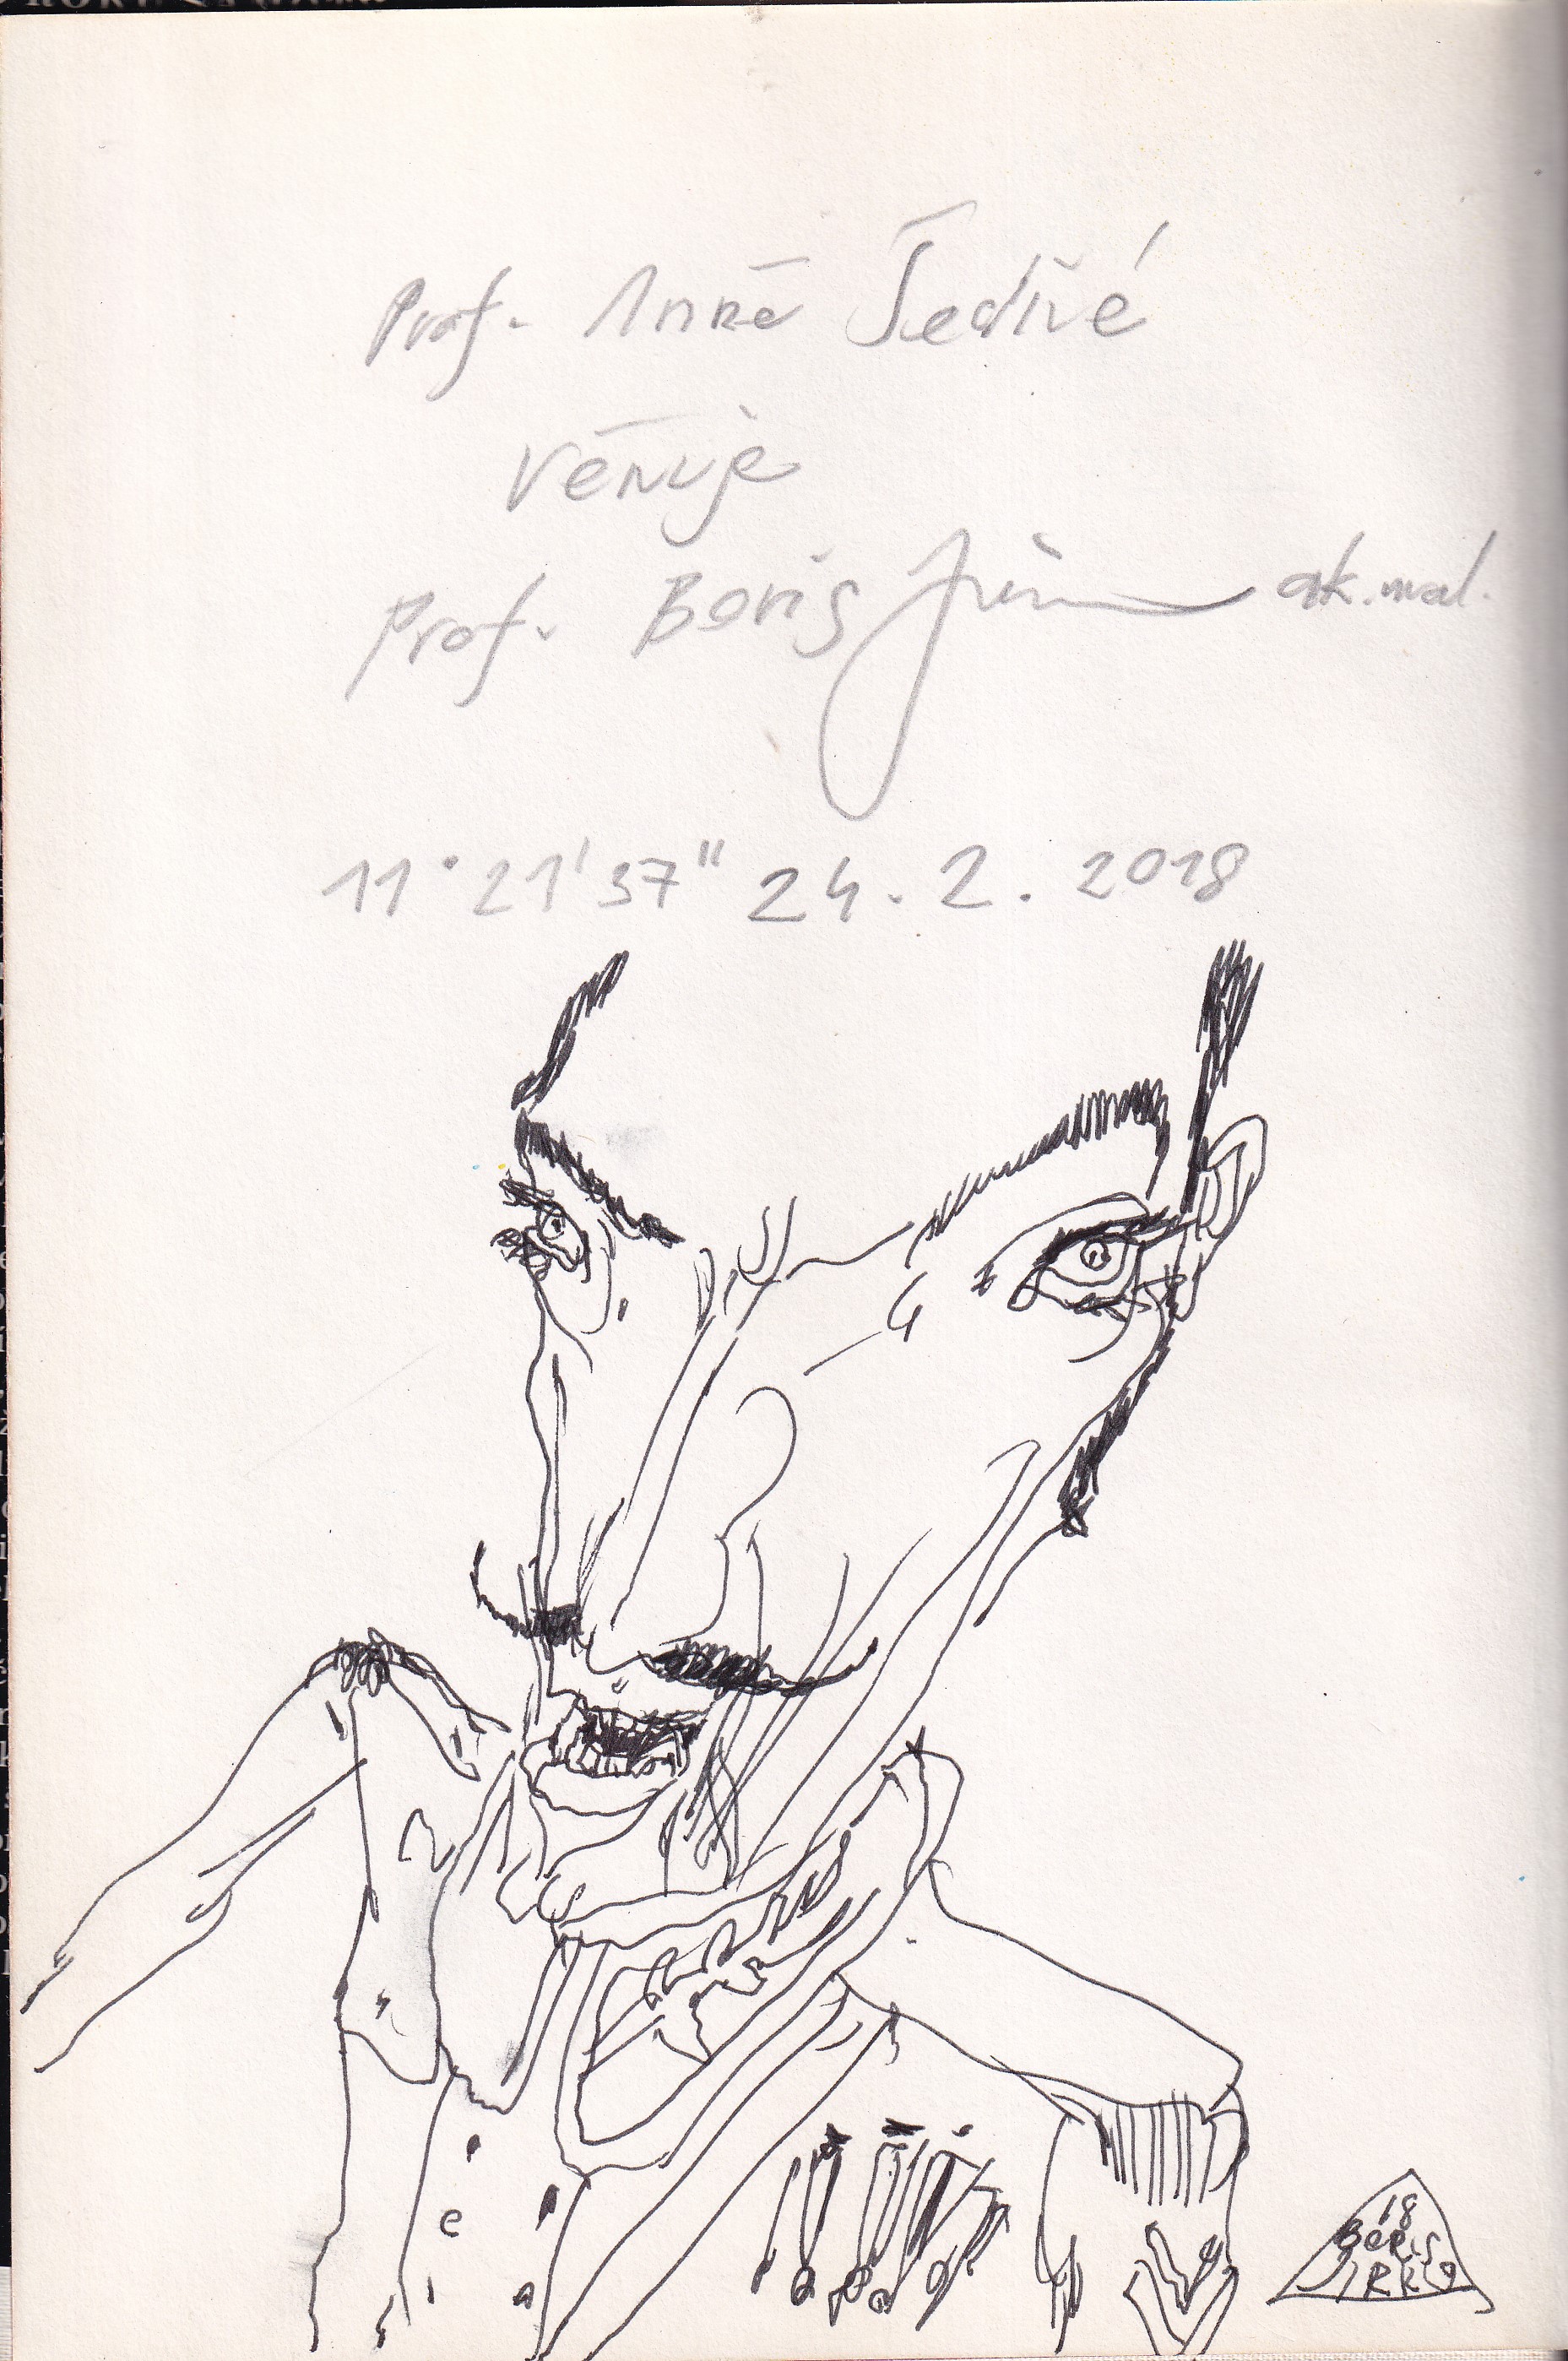 Prof. Anně Šedivé
věnuje
Prof. Boris Jirků ak. mal.
11° 21' 37" 24. 2. 2018
18
BORIS
JIRKŮ